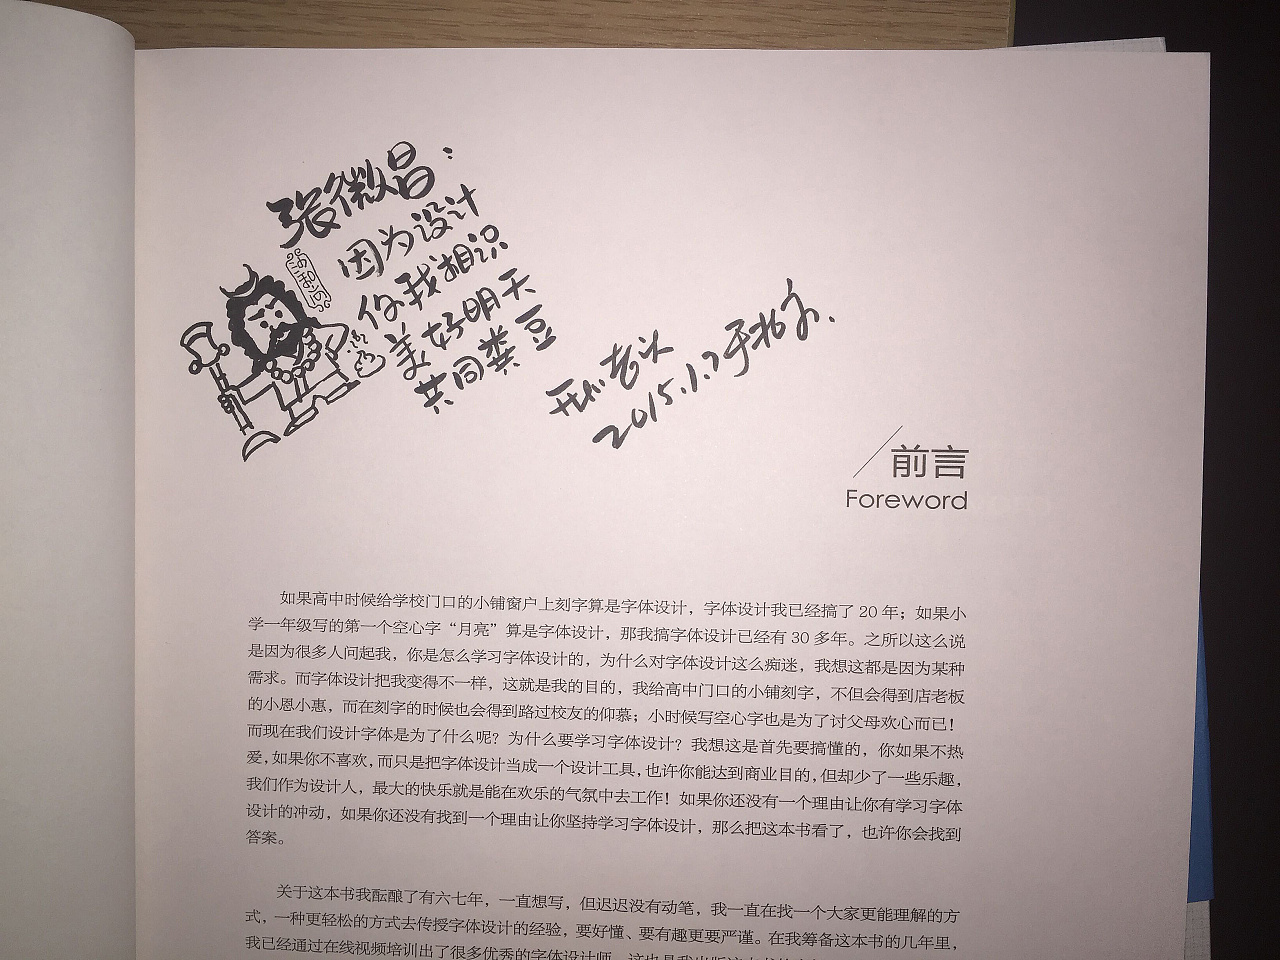 张微昌:
因为设计
你我相识
美好明天
共同粪豆
2015.1.7于北京.
前言
Foreword
如果高中时候给学校门口的小铺窗户上刻字算是字体设计，字体设计我已经搞了 20 年；如果小
学一年级写的第一个空心字“月亮”算是字体设计，那我搞字体设计已经有 30 多年。之所以这么说
是因为很多人问起我，你是怎么学习字体设计的，为什么对字体设计这么痴迷，我想这都是因为某种
需求。而字体设计把我变得不一样，这就是我的目的，我给高中门口的小铺刻字，不但会得到店老板
的小恩小惠，而在刻字的时候也会得到路过校友的仰慕；小时候写空心字也是为了讨父母欢心而已！
而现在我们设计字体是为了什么呢？为什么要学习字体设计？我想这是首先要搞懂的，你如果不热
爱，如果你不喜欢，而只是把字体设计当成一个设计工具，也许你能达到商业目的，但却少了一些乐趣，
我们作为设计人，最大的快乐就是能在欢乐的气氛中去工作！如果你还没有一个理由让你有学习字体
设计的冲动，如果你还没有找到一个理由让你坚持学习字体设计，那么把这本书看了，也许你会找到
答案。
关于这本书我酝酿了有六七年，一直想写，但迟迟没有动笔，我一直在找一个大家更能理解的方
式，一种更轻松的方式去传授字体设计的经验，要好懂、要有趣更要严谨。在我筹备这本书的几年里，
我已经通过在线视频培训出了很多优秀的字体设计师，这也是我出版这本书的